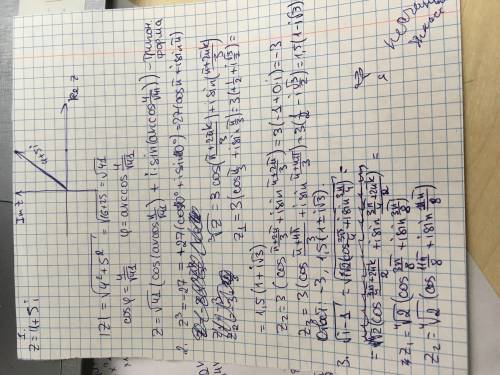 1.
z = 4+5i
Im z
4+5i
Re z
|z| = √4²+5² = √16+25 = √41
cosφ = 4/√41   φ = arccos 4/√41
z = √41 (cos(arccos 4/√41) + i·sin(arccos 4/√41)) - тригон. форма
2. z³ = -27 = 27(cos180° + i sin180°) = 27(cosπ + i sinπ)
³√z = 3 cos(π+2πk)/3 + i sin(π+2πk)/3
z₁ = 3(cos π/3 + i sin π/3) = 3(1/2 + i√3/2) =
= 1,5(1+i√3)
z₂ = 3(cos (π+2π)/3 + i sin (π+2π)/3) = 3(-1+0i) = -3
z₃ = 3(cos (π+4π)/3 + i sin (π+4π)/3) = 3(1/2 - i√3/2) = 1,5(1-i√3)
Ответ: -3, 1,5(1±i√3)
3. √i-1 = √√2(cos 3π/4 + i sin 3π/4) =
z₁ = ⁴√2 (cos 3π/8 + i sin 3π/8)
z₂ = ⁴√2 (cos 11π/8 + i sin 11π/8)